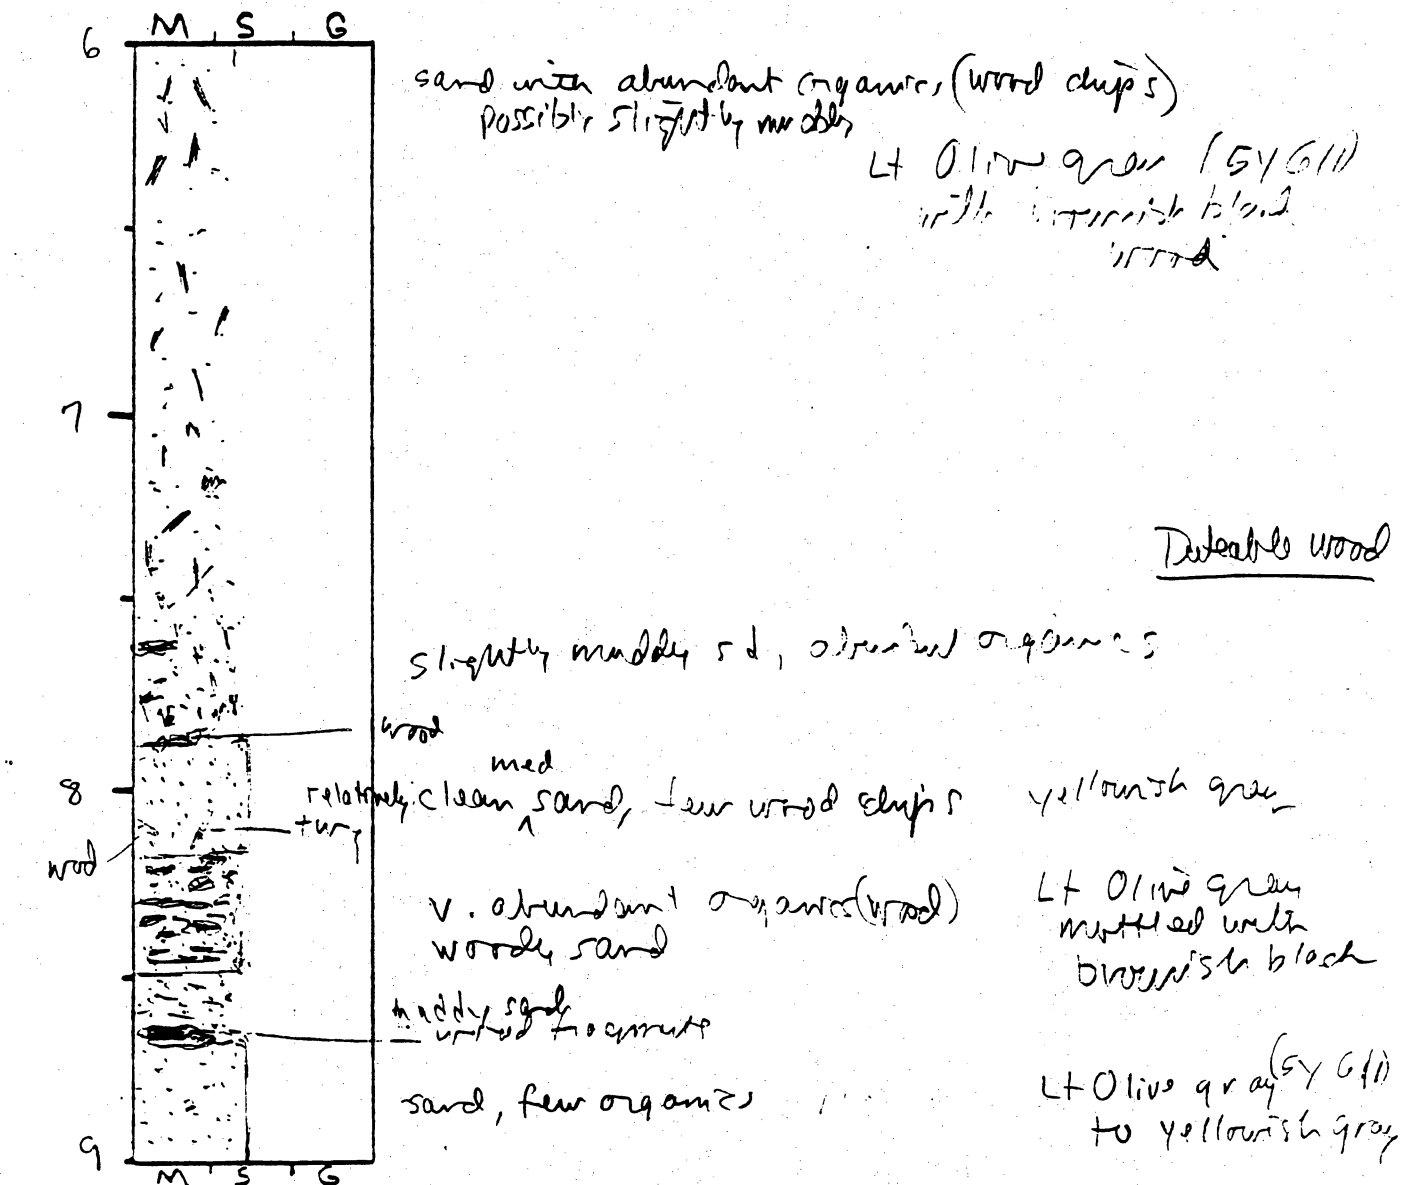 M S G
6
sand with abundant organics (wood chips)
possibly slightly muddy
Lt Olive gray (5Y 6/1)
with brownish black
wood
7
Dateable wood
slightly muddy sd, abundant organics
wood
med
8 relatively clean ^ sand, few wood chips yellowish gray
wod
v. abundant organics (wood)
woody sand
Lt Olive gray
mottled with
brownish black
muddy sand
wood fragments
sand, few organics
Lt Olive gray (5Y 6/1)
to yellowish gray
9
M S G